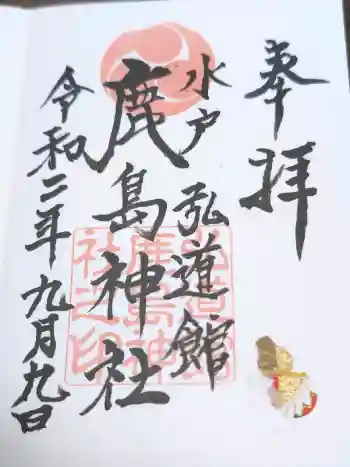 奉拝
水戸弘道館
鹿島神社
令和二年九月九日
弘道館
鹿島神
社之印